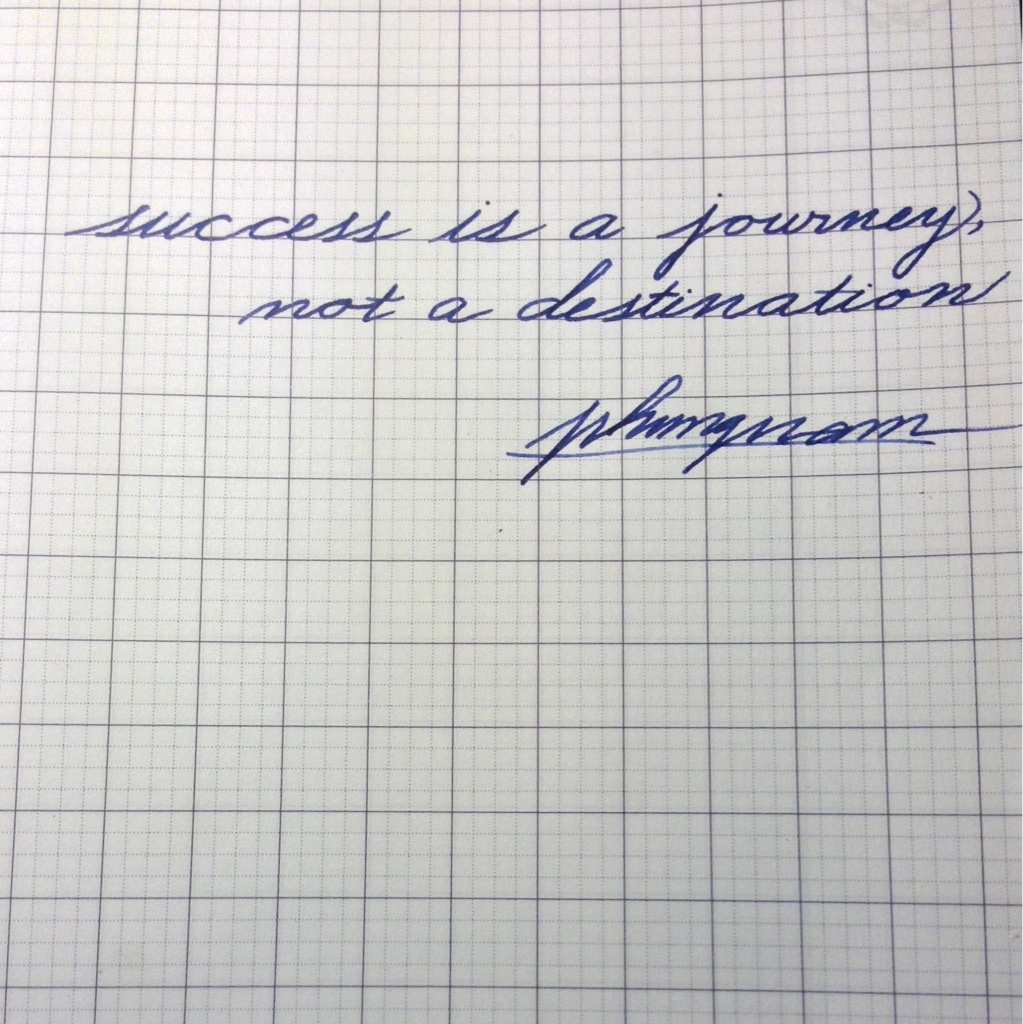 success is a journey,
not a destination
phungnam